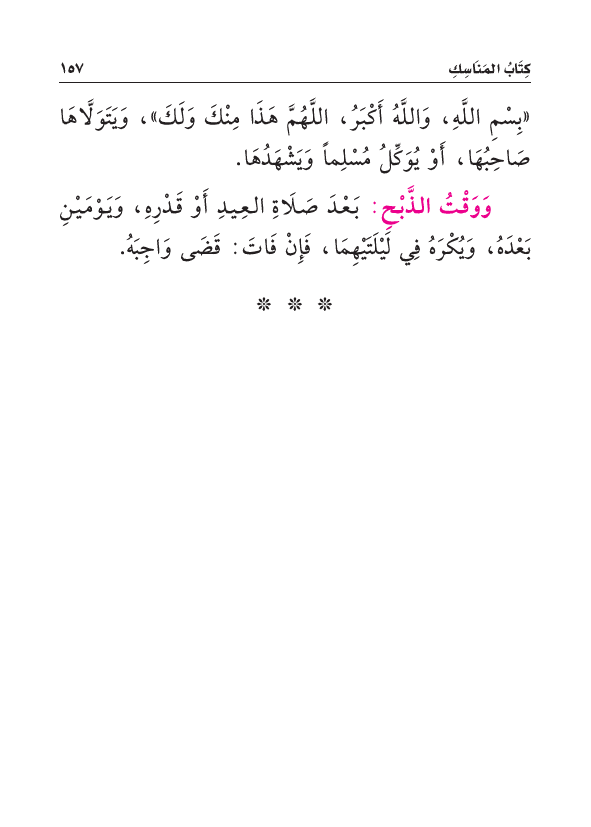 كِتَابُ المَنَاسِكِ ١٥٧
«بِسْمِ اللَّهِ، وَاللَّهُ أَكْبَرُ، اللَّهُمَّ هَذَا مِنْكَ وَلَكَ»، وَيَتَوَلَّاهَا
صَاحِبُهَا، أَوْ يُوَكِّلُ مُسْلِماً وَيَشْهَدُهَا.
وَوَقْتُ الذَّبْحِ: بَعْدَ صَلَاةِ العِيدِ أَوْ قَدْرِهِ، وَيَوْمَيْنِ
بَعْدَهُ، وَيُكْرَهُ فِي لَيْلَتَيْهِمَا، فَإِنْ فَاتَ: قَضَى وَاجِبَهُ.
* * *